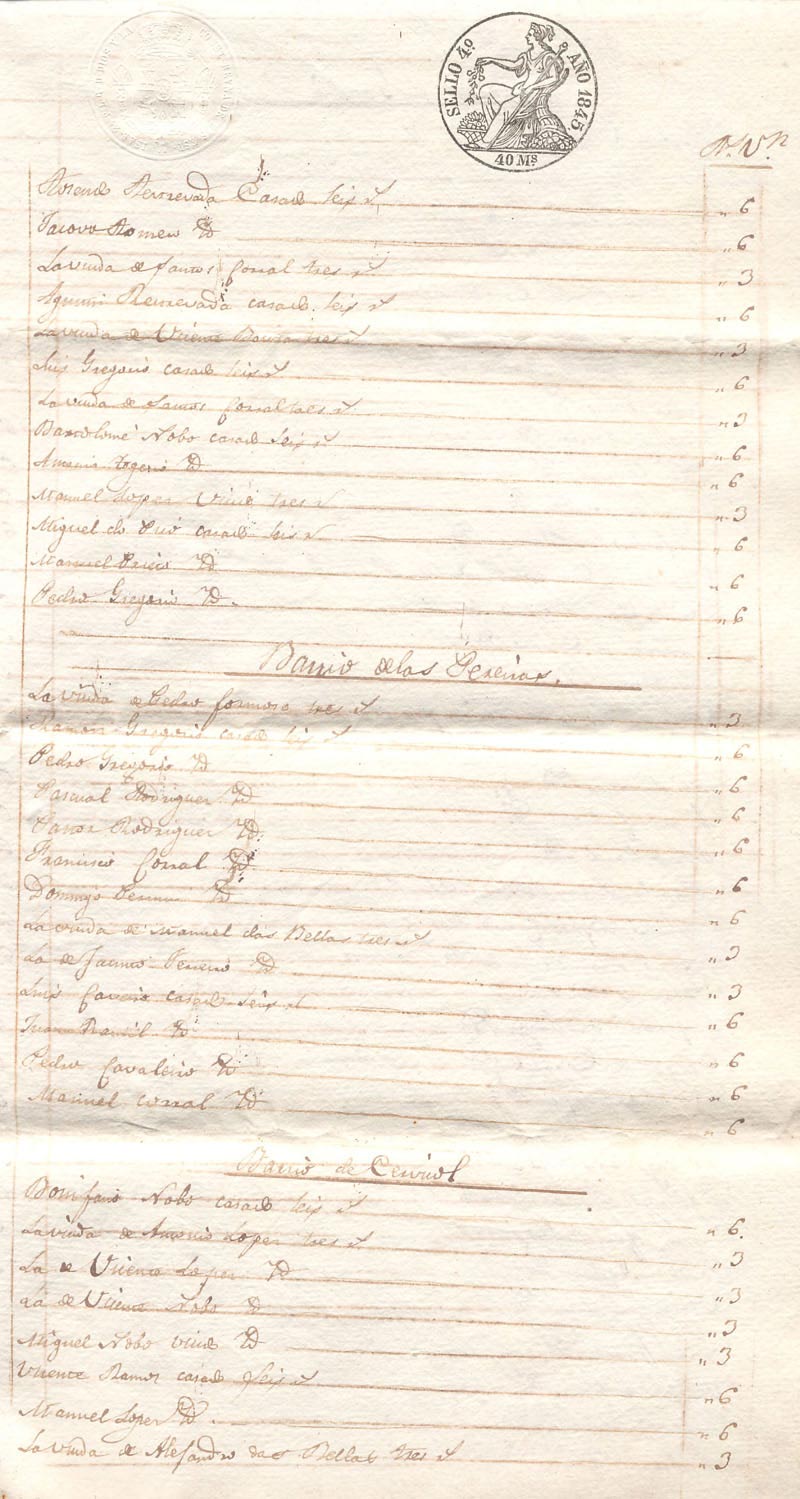 SELLO 4.º AÑO 1845
40 M.s
R.s V.n
Casado seis r.s " 6
Jacovo Romeu Yd " 6
La viuda de Santos Corral tres r.s " 3
casado seis r.s " 6
La viuda de Vicente tres r.s " 3
Luis Gregorio casado seis r.s " 6
La viuda de Santos Corral tres r.s " 3
Bartolomé Nobo casado seis r.s " 6
Antonio Yd " 6
Manuel Lopez Viudo tres r.s " 3
Miguel do casado seis r.s " 6
Manuel Yd " 6
Pedro Gregorio Yd. " 6
Barrio de las Pereiras.
La viuda de Pedro formoso tres r.s " 3
Ramon Gregorio casado seis r.s " 6
Pedro Gregorio Yd " 6
Pascual Rodriguez Yd " 6
Rodriguez Yd. " 6
Francisco Corral Yd " 6
Domingo Yd " 6
La viuda de Manuel das Bellas tres r.s " 3
La de Ferreiro Yd " 3
Luis casado seis r.s " 6
Juan Yd " 6
Pedro Cavaleiro Yd " 6
Manuel Corral Yd " 6
Barrio de
Bonifacio Nobo casado seis r.s " 6.
La viuda de Antonio Lopez tres r.s " 3
La de Vicente Lopez Yd " 3
La de Vicente Nobo Yd " 3
Miguel Nobo viudo Yd " 3
Vicente Ramos casado seis r.s " 6
Manuel Lopez Yd. " 6
La viuda de Alejandro das Bellas tres r.s " 3